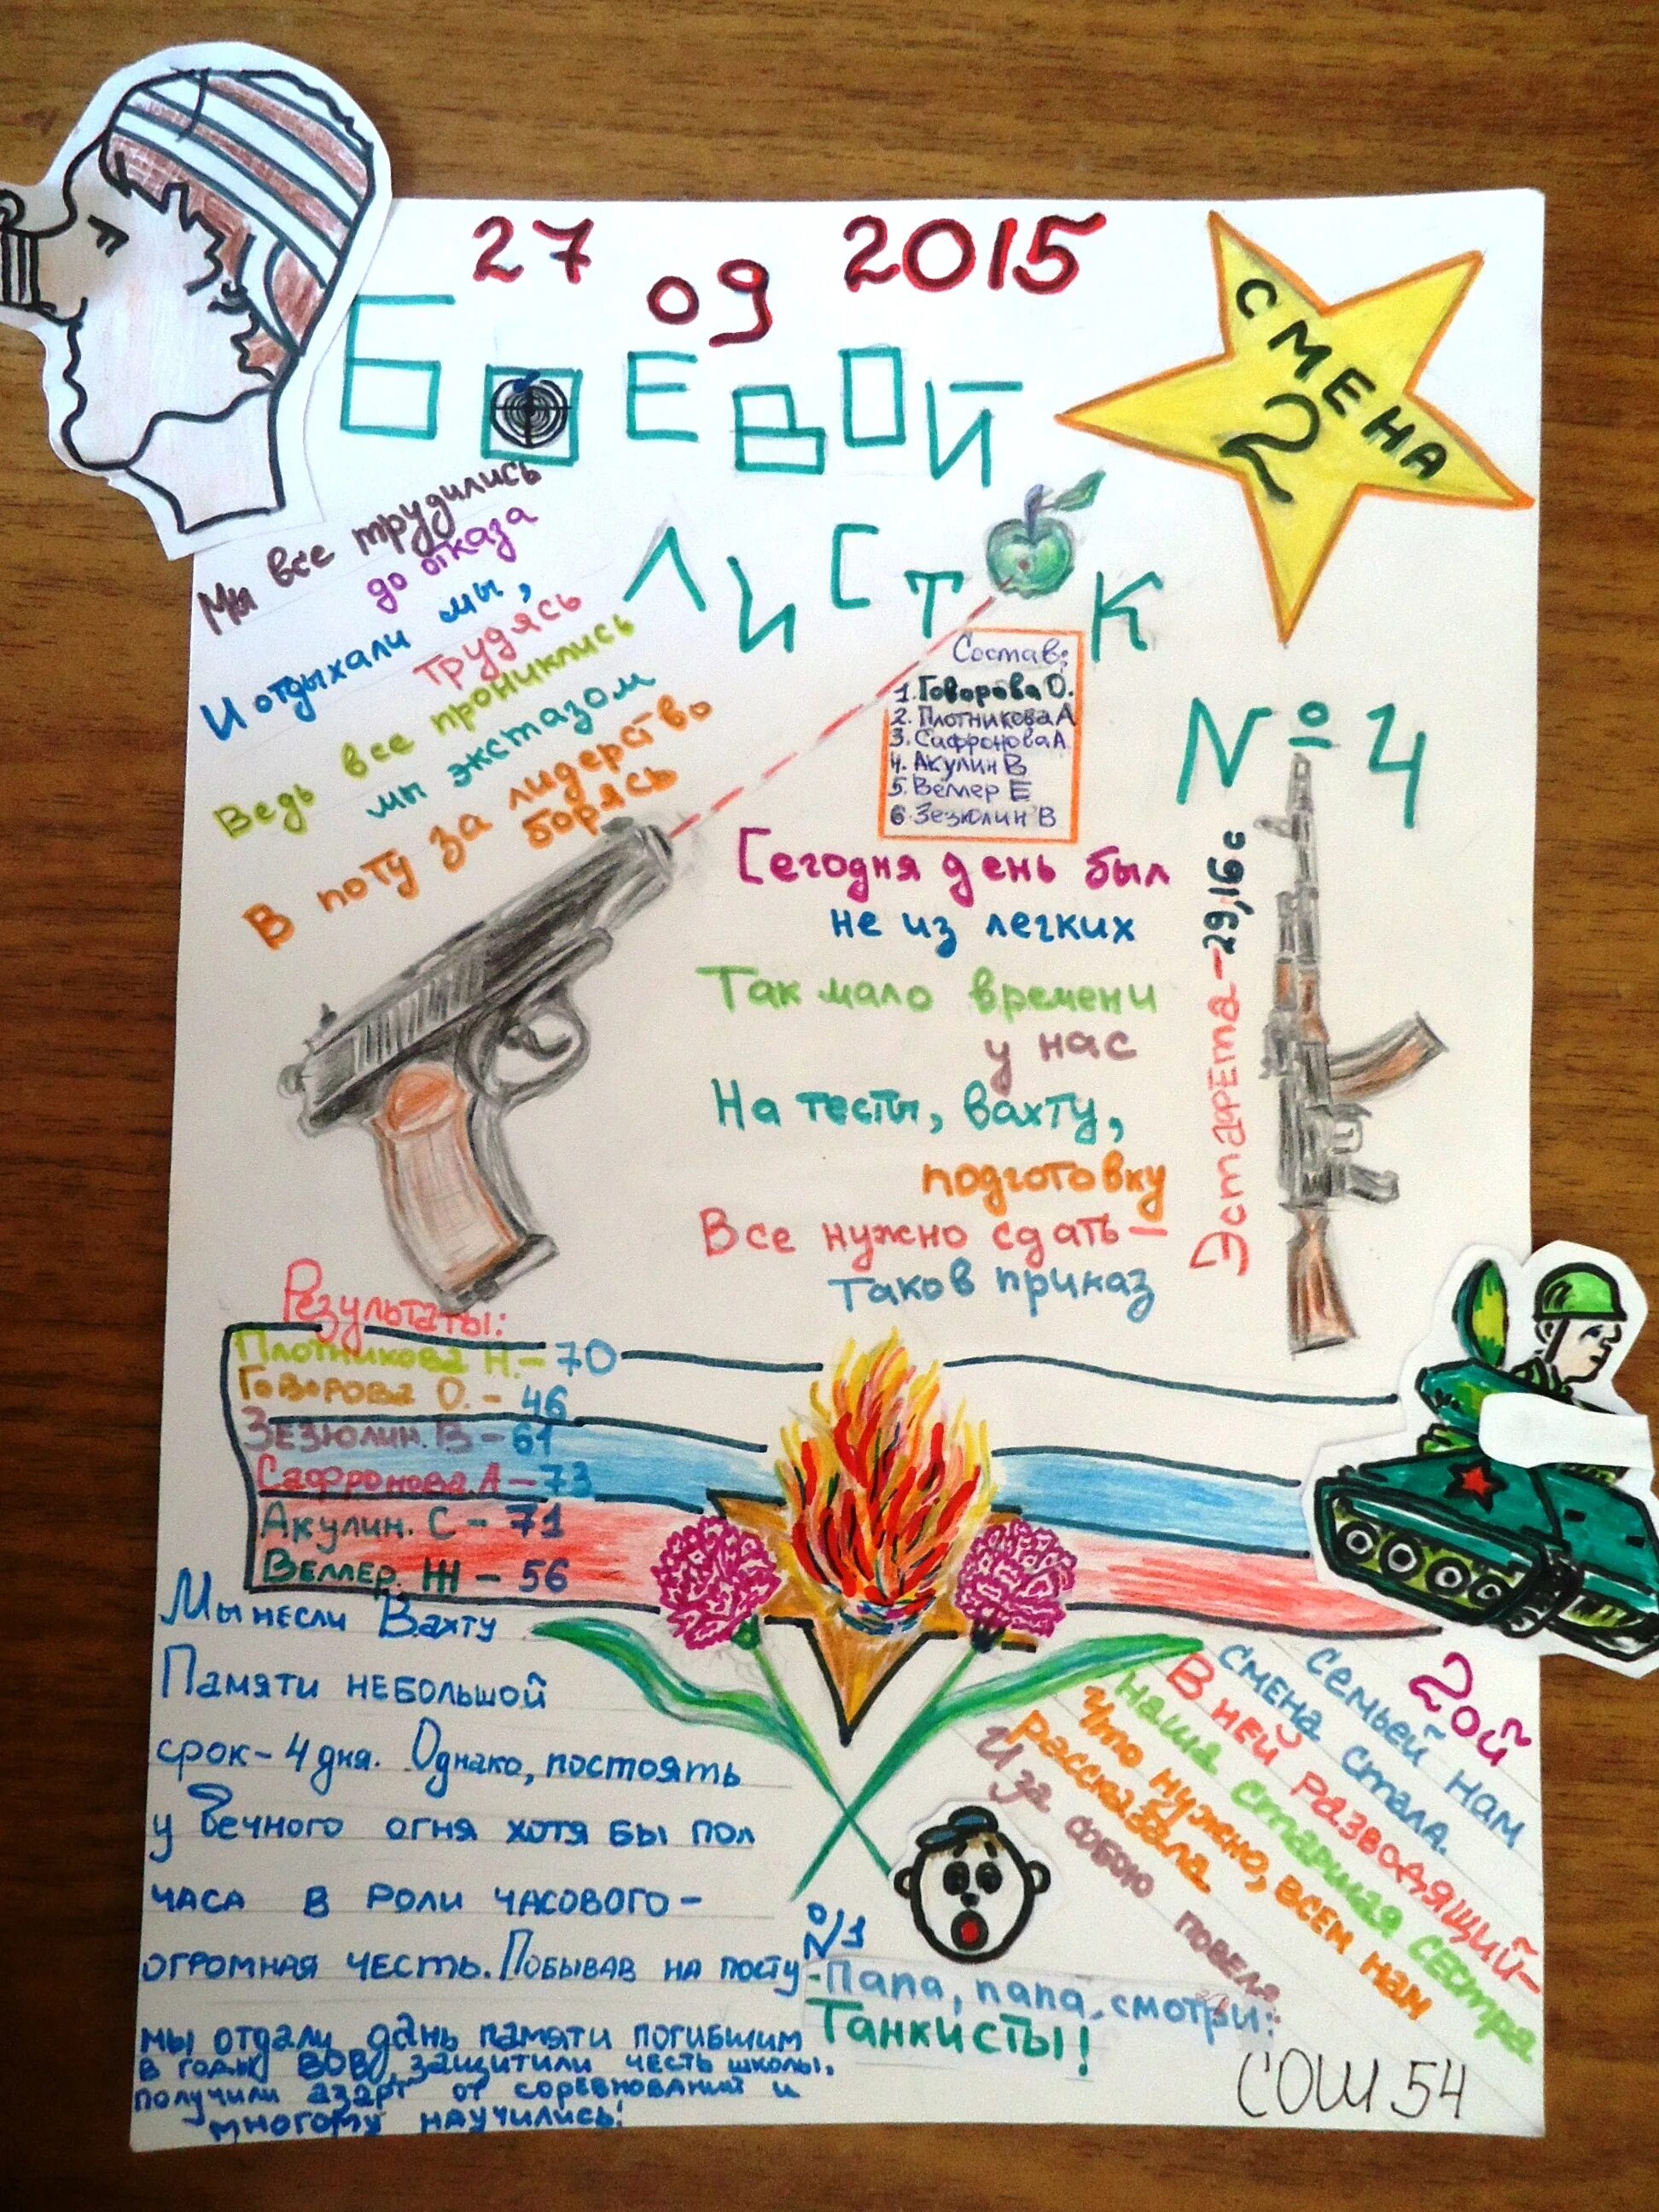 27 09 2015
БОЕВОЙ
ЛИСТОК
№4
СМЕНА
2
Мы все трудились
до отказа
И отдыхали мы,
трудясь
Ведь все прониклись
мы экстазом
В поту за лидерство
борясь
Состав:
1. Говорова О.
2. Плотникова А
3. Сафронова А
4. Акулин В
5. Веллер Е
6. Зезюлин В
Сегодня день был
не из легких
Так мало времени
у нас
На тесты, вахту,
подготовку
Все нужно сдать —
таков приказ
Эстафета – 29,16 с
Результаты:
Плотникова Н. – 70
Говорова О. – 46
Зезюлин. В – 61
Сафронова А – 73
Акулин. С – 71
Веллер. Ж – 56
Мы несли Вахту
Памяти небольшой
срок – 4 дня. Однако, постоять
у Вечного огня хотя бы пол
часа в роли часового –
огромная честь. Побывав на посту №1
мы отдали дань памяти погибшим
в годы ВОВ, защитили честь школы,
получили азарт от соревнований и
многому научились!
2ой
семьей нам
смена стала.
В ней разводящий –
наша старшая сестра
Что нужно, всем нам
рассказала
И за собою повела
- Папа, папа, смотри:
Танкисты!
СОШ 54